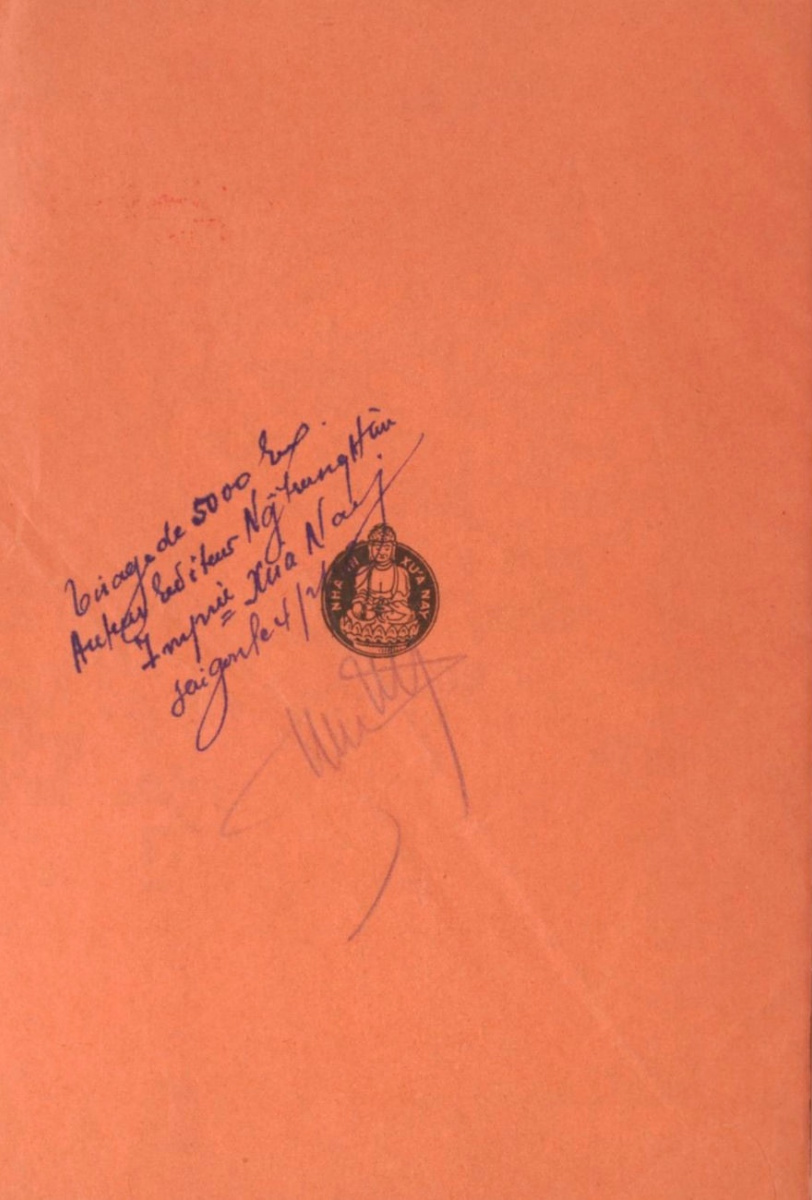 Tirage de 5000 Ex.
Auteur Editeur Ng trung Hân
Imprie = Xưa Nay
Saigon le 4/
NHÀ IN XƯA NAY